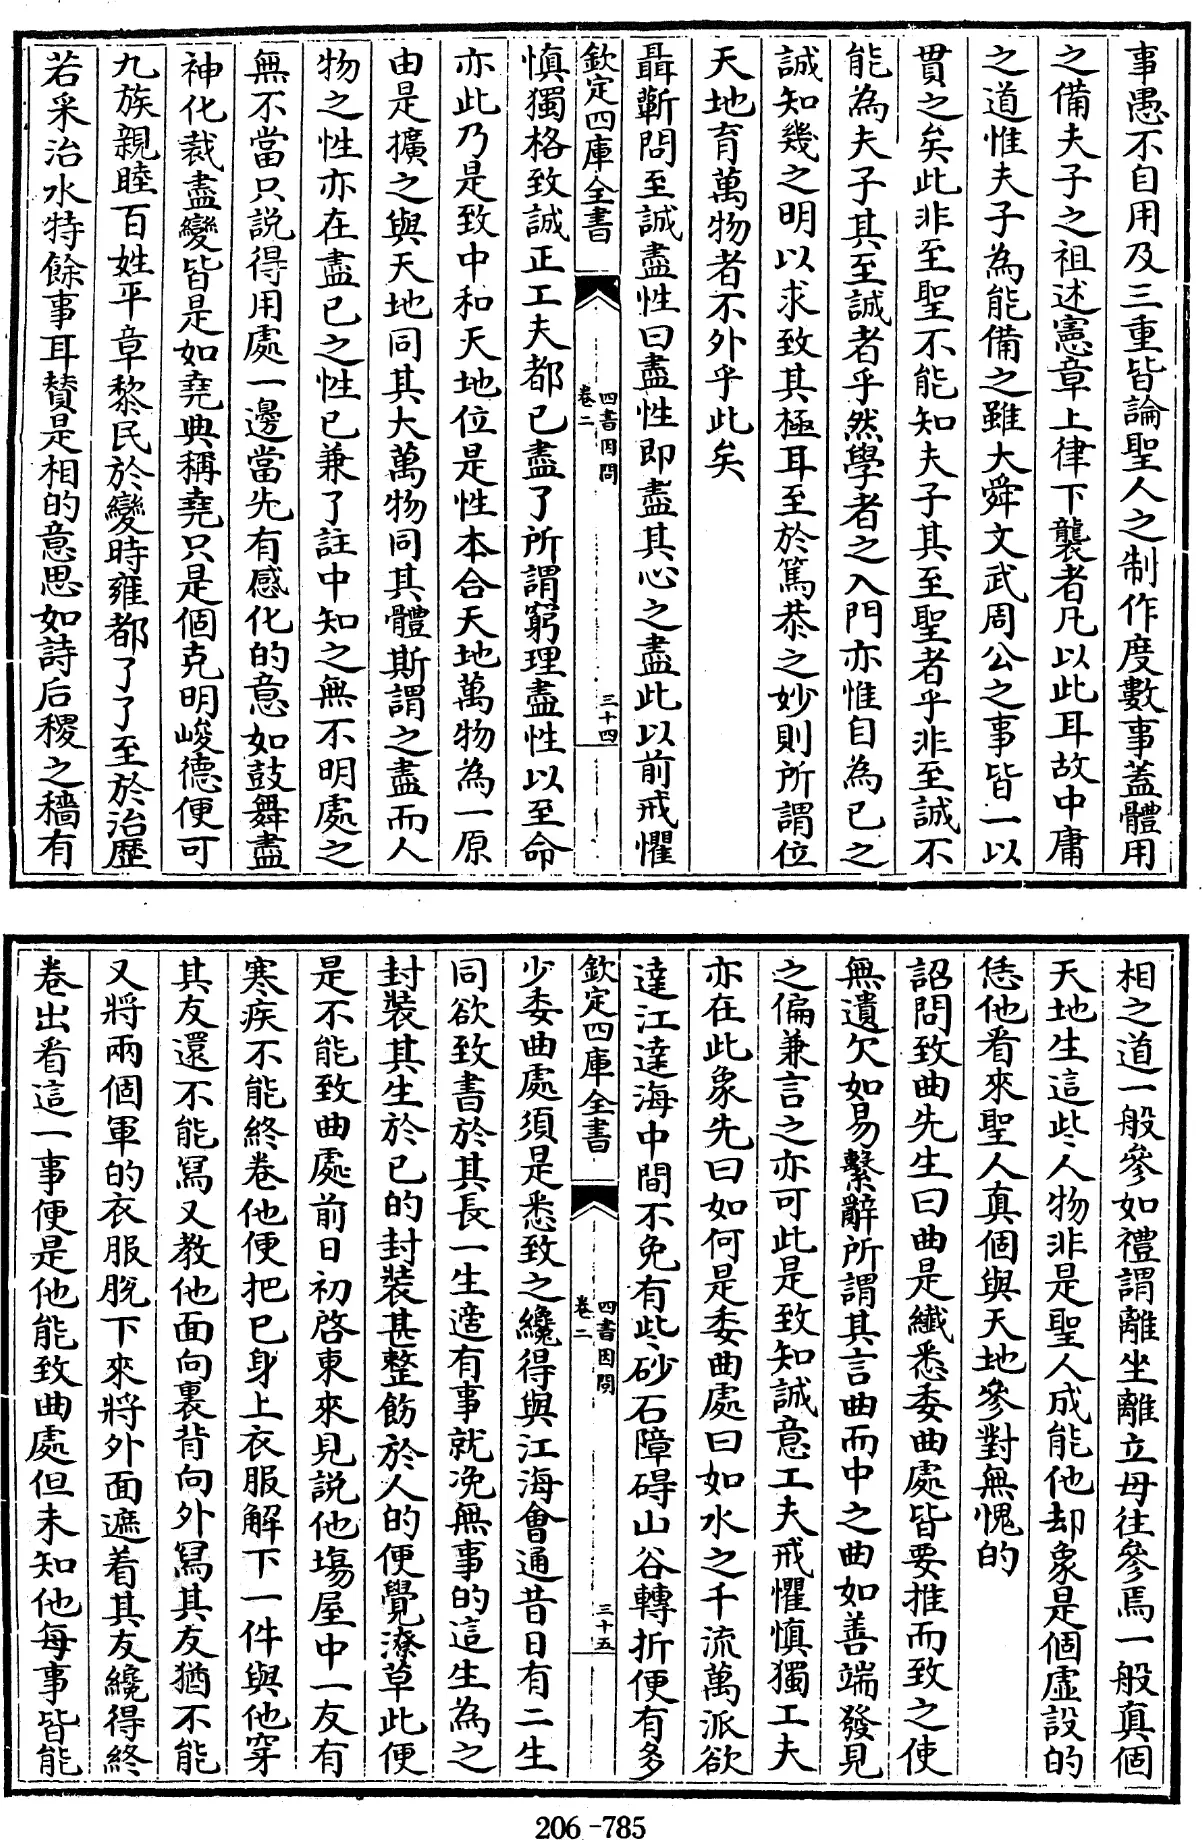 事愚不自用及三重皆論聖人之制作度數事蓋體用
之備夫子之祖述憲章上律下襲者凡以此耳故中庸
之道惟夫子為能備之雖大舜文武周公之事皆一以
貫之矣此非至聖不能知夫子其至聖者乎非至誠不
能為夫子其至誠者乎然學者之入門亦惟自為已之
誠知幾之明以求致其極耳至於篤恭之妙則所謂位
天地育萬物者不外乎此矣
聶蘄問至誠盡性曰盡性即盡其心之盡此以前戒懼
欽定四庫全書
四書因問
卷二
三十四
慎獨格致誠正工夫都已盡了所謂窮理盡性以至命
亦此乃是致中和天地位是性本合天地萬物為一原
由是擴之與天地同其大萬物同其體斯謂之盡而人
物之性亦在盡已之性已兼了註中知之無不明處之
無不當只說得用處一邊當先有感化的意如鼓舞盡
神化裁盡變皆是如堯典稱堯只是個克明峻德便可
九族親睦百姓平章黎民於變時雍都了了至於治歷
若采治水特餘事耳贊是相的意思如詩后稷之穡有
相之道一般參如禮謂離坐離立毋往參焉一般真個
天地生這些人物非是聖人成能他却象是個虛設的
恁他看來聖人真個與天地參對無愧的
詔問致曲先生曰曲是纖悉委曲處皆要推而致之使
無遺欠如易繫辭所謂其言曲而中之曲如善端發見
之偏兼言之亦可此是致知誠意工夫戒懼慎獨工夫
亦在此象先曰如何是委曲處曰如水之千流萬派欲
達江達海中間不免有些砂石障碍山谷轉折便有多
欽定四庫全書
四書因問
卷二
三十五
少委曲處須是悉致之纔得與江海會通昔日有二生
同欲致書於其長一生適有事就浼無事的這生為之
封裝其生於已的封裝甚整飭於人的便覺潦草此便
是不能致曲處前日初啓東來見說他塲屋中一友有
寒疾不能終卷他便把已身上衣服解下一件與他穿
其友還不能寫又教他面向裏背向外寫其友猶不能
又將兩個軍的衣服脫下來將外面遮着其友纔得終
卷出看這一事便是他能致曲處但未知他每事皆能
206-785